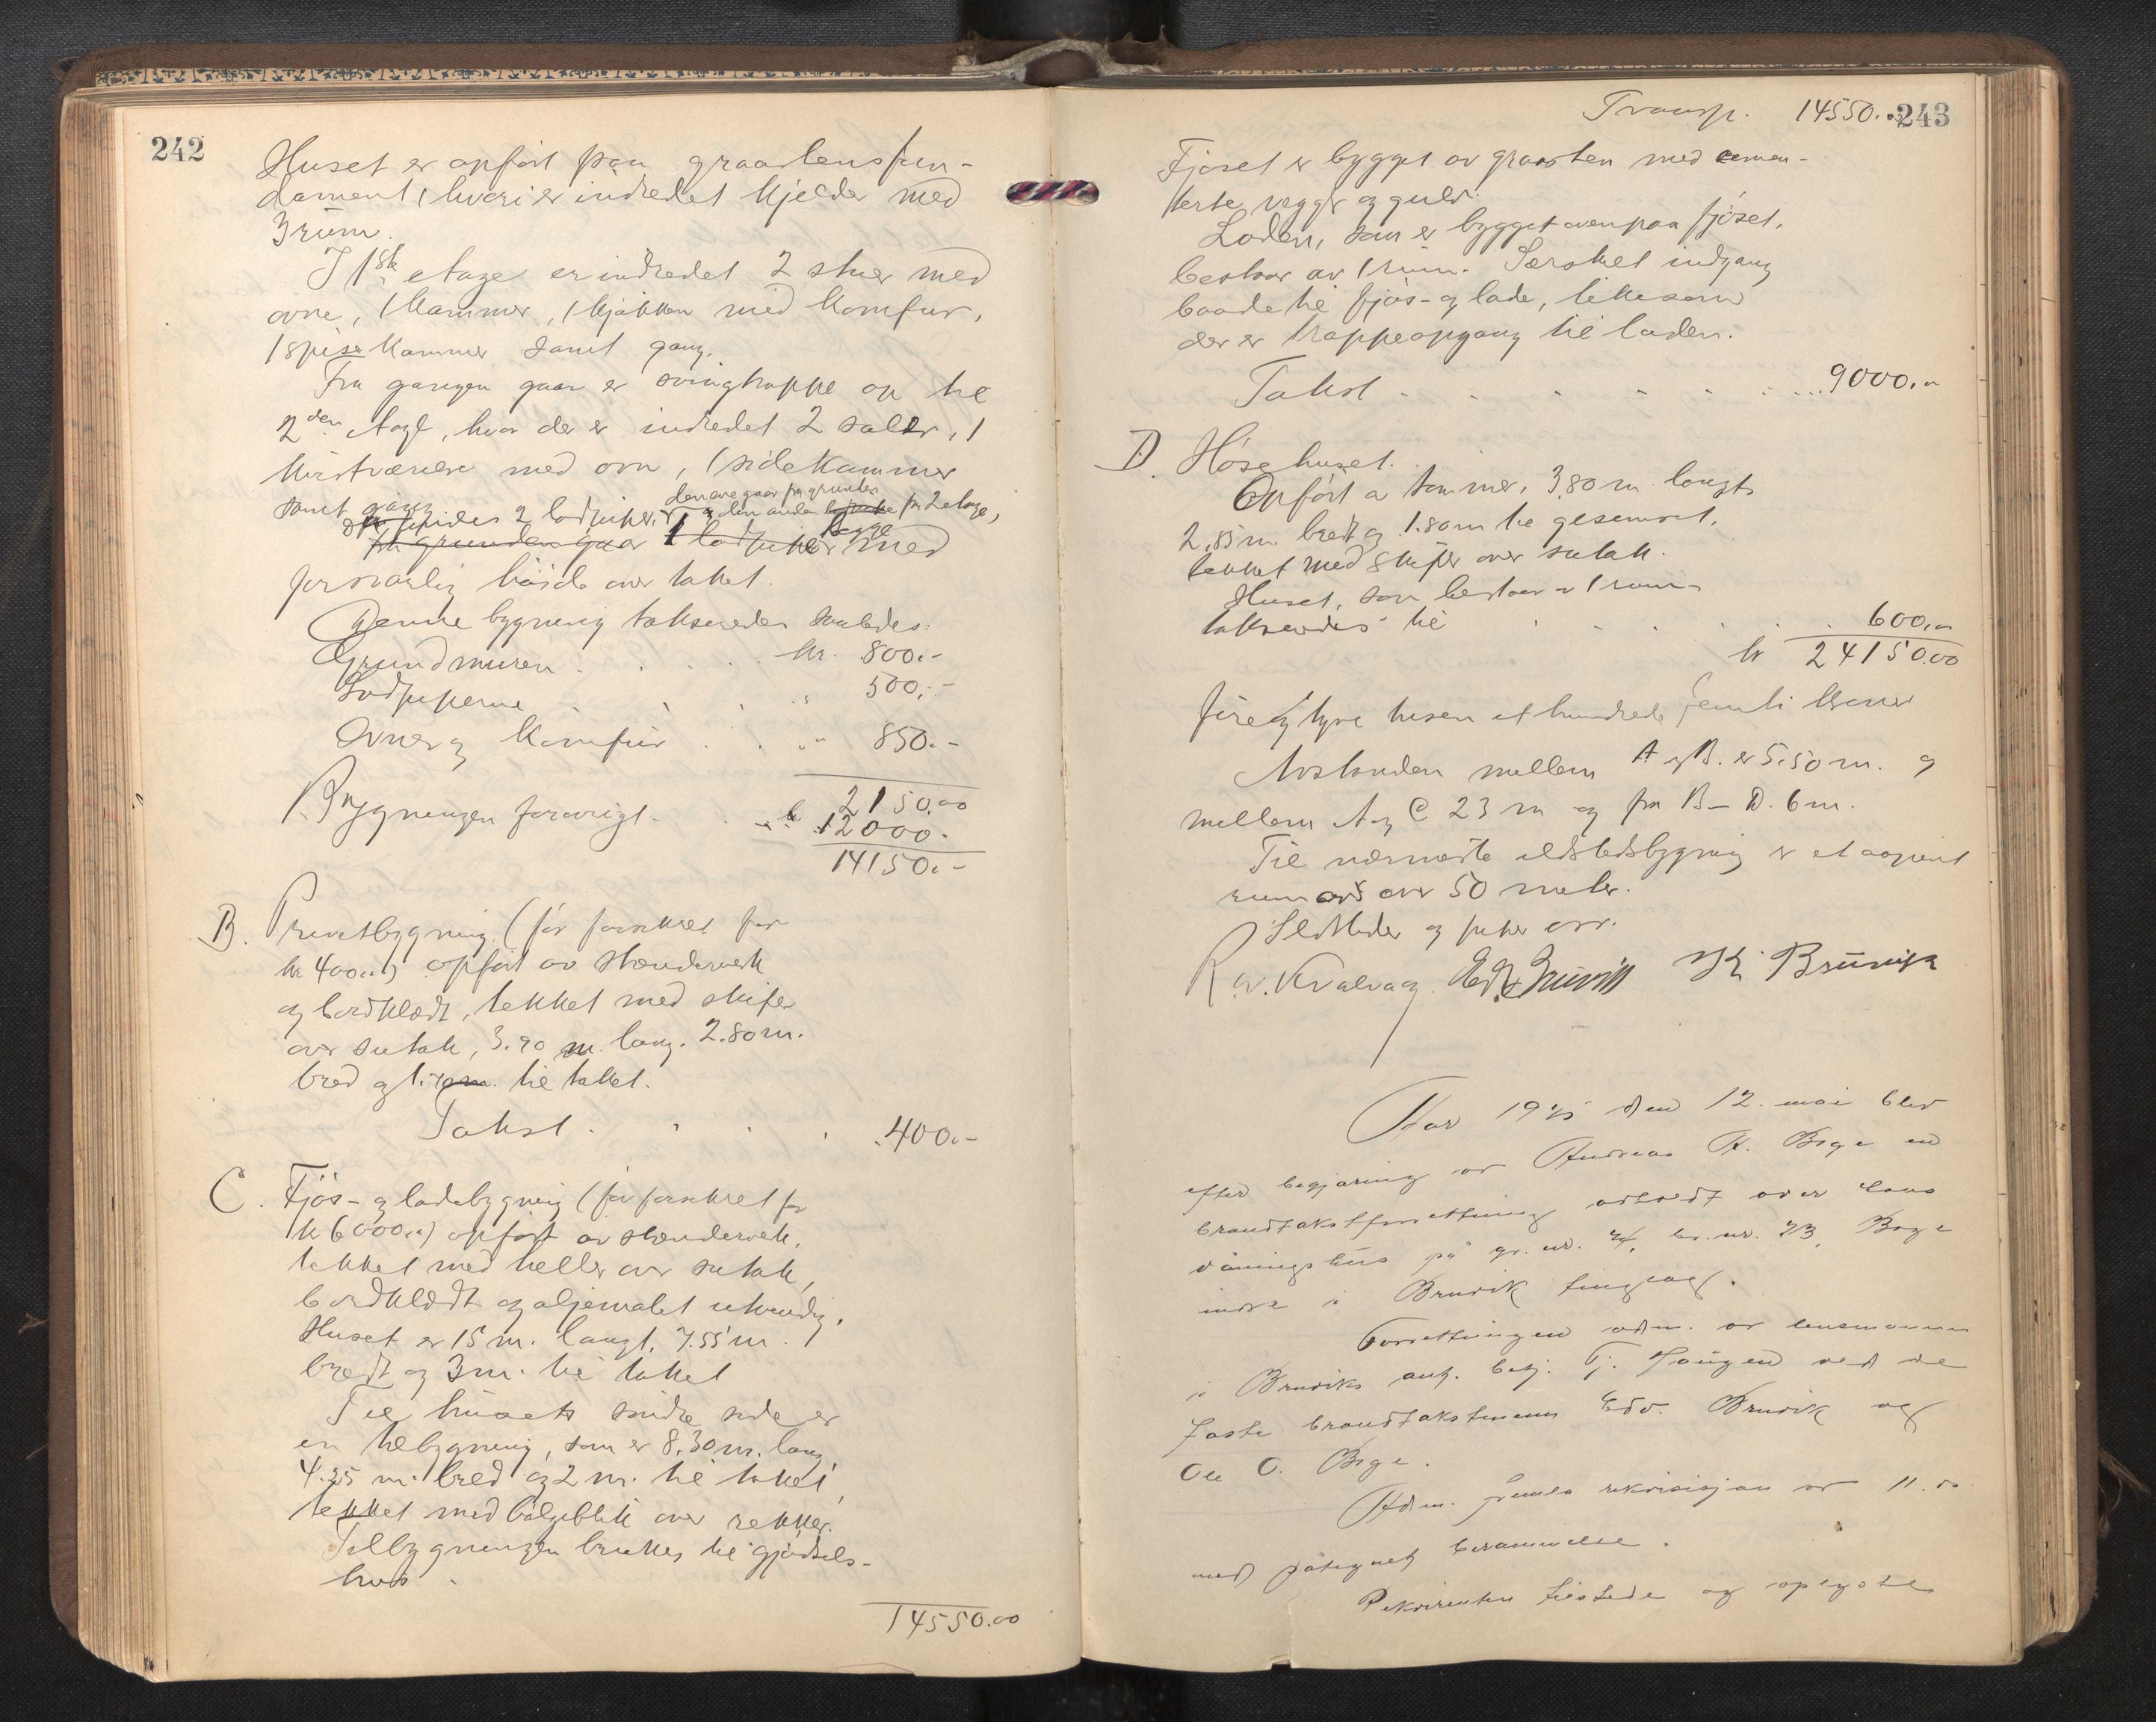 242
Huset er opført paa graastensfun-
dament, hvori er indredet kjelder med
3 rum.
I 1ste etage er indredet 2 stuer med
ovne, 1 kammer, 1 kjøkken med komfur,
1 spisekammer samt gang.
Fra gangen gaar er svingtrappe op til
2den etage, hvor der er indredet 2 saler, 1
med ovn, 1 sidekammer
den ene gaar fra grunden
samt gang 2 lodpiper, og den anden fra 2 etage,
fra grunden gaar 1 lodpipe begge med
forsvarlig høide over taket.
Denne bygning takseredes saaledes:
Grundmuren . . . . kr. 800.-
Lodpiperne . . . . " 500.-
Ovner og komfur . . . " 850.-
2150.00
Bygningen forøvrigt . . kr 12000.-
14150.-
B. Privetbygning (før forsikret for
kr 400.00) opført av stenderverk
og bordklædt, tekket med skifer
over sutak, 3.90 m. lang. 2.80 m.
bred og til taket.
Takst . . . . 400.-
C. Fjøs- og ladebygning (før forsikret for
kr 6000.00) opført av stenderverk,
tekket med heller over sutak,
bordklædt og oljemalet utvendig,
Huset er 15 m. langt, 7.55 m.
bredt og 3 m. til taket
Til husets søndre side er
en tilbygning, som er 8.30 m. lang,
4.35 m. bred og 2 m. til taket,
tekket med bølgeblik over rekker.
Tilbygningen brukes til gjødsels-
hus.
14550.00
Transp. 14550.00
243
Fjøset er bygget av graasten med cemen-
terte vegger og gulv.
Laden, som er bygget ovenpaa fjøset,
bestaar av 1 rum. Særskilt indgang
baade til fjøs- og lade, likesom
der er trappeopgang til laden.
Takst . . . . . . 9000.00
D. Hønsehuset.
Opført av tømmer, 3.80 m. langt
2.85 m. bredt og 1.80 m til gesemset,
tekket med skifer over sutak.
Huset, som bestaar av 1 rum
takseredes til . . . . . 600.00
kr 24150.00
fire og tyve tusen et hundrede femti kroner
Avstanden mellem A og B. er 5.50 m. og
mellem A og C 23 m og fra B – D. 6 m.
Til nærmeste ildstedsbygning er et aapent
rum av over 50 meter.
Ildsteder og piper orr.
R. N. Kvalvaag Edv. Bruvik K. Bruvik
Aar 1945 den 12. mai blev
efter begjæring av Andreas A. Boge en
brandtakstforretning avholdt over hans
våningshus på gr. nr. 74, br. nr. 23, Boge
indre i Bruvik tinglag.
Forretningen adm. av lensmannen
i Bruviks aut. betj. Tj. Haugen ved de
faste brandtakstmenn Edv. Bruvik og
Ole O. Boge.
Adm. fremla rekvisisjon av 11. ds
med påtegnet berammelse.
Rekvirenten tilstede og opgoties